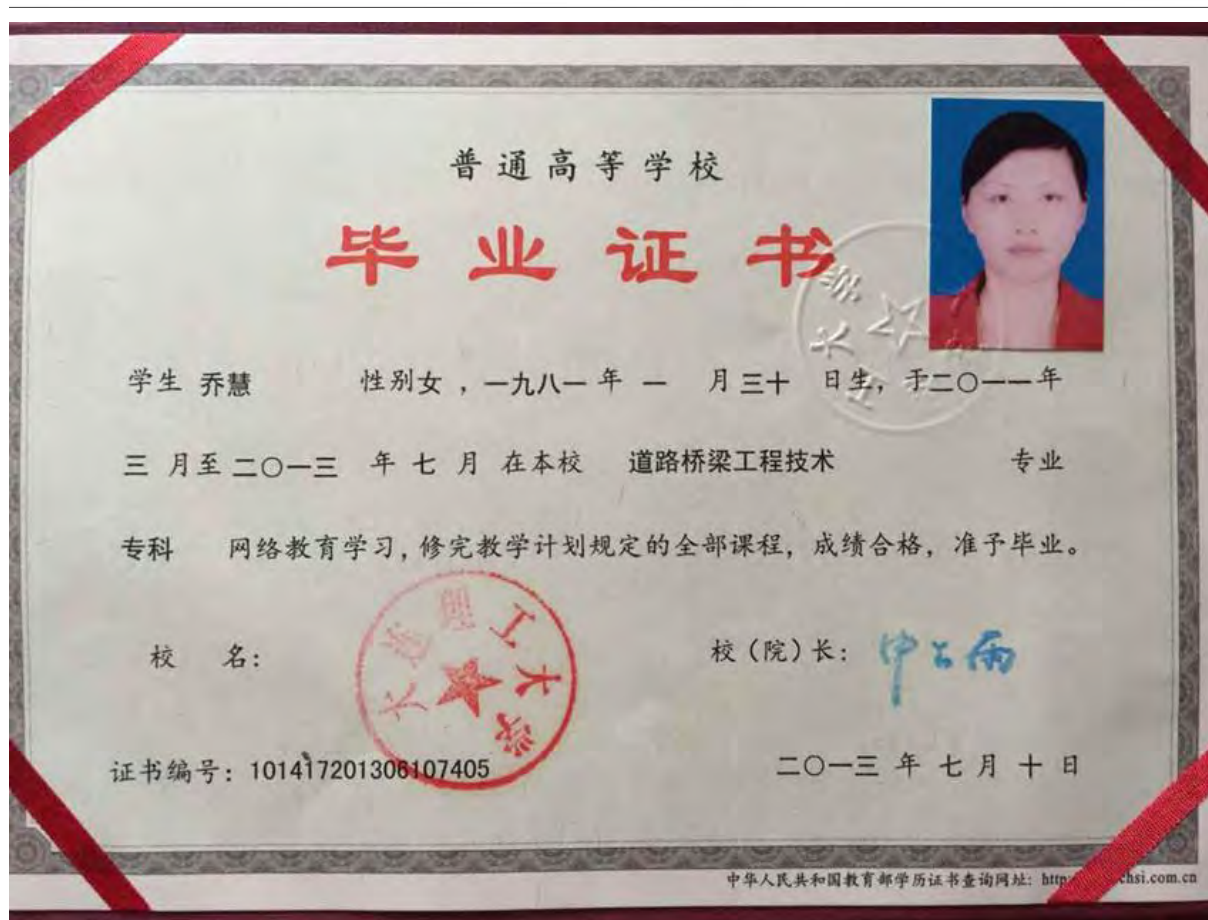 普通高等学校
毕业证书
学生 乔慧 性别女，一九八一年 一 月三十 日生，于二〇一一年
三 月至二〇一三 年 七 月 在本校 道路桥梁工程技术 专业
专科 网络教育学习，修完教学计划规定的全部课程，成绩合格，准予毕业。
校 名：
大连理工大学
校（院）长：
证书编号：101417201306107405
二〇一三 年 七 月 十 日
中华人民共和国教育部学历证书查询网址：http chsi.com.cn